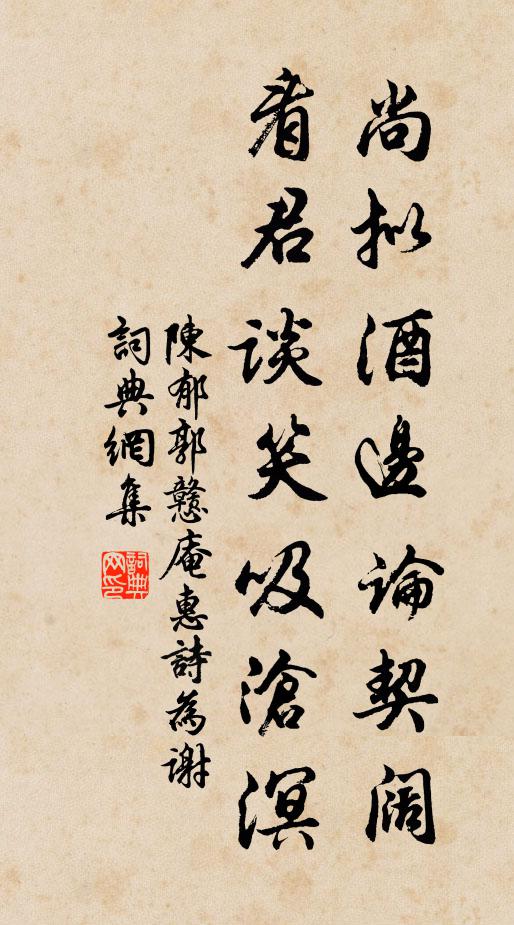 尚拟酒邊論契阔
看君谈笑吸滄溟
陳郁郭戇庵惠詩為謝
詞典網集
詞典网印